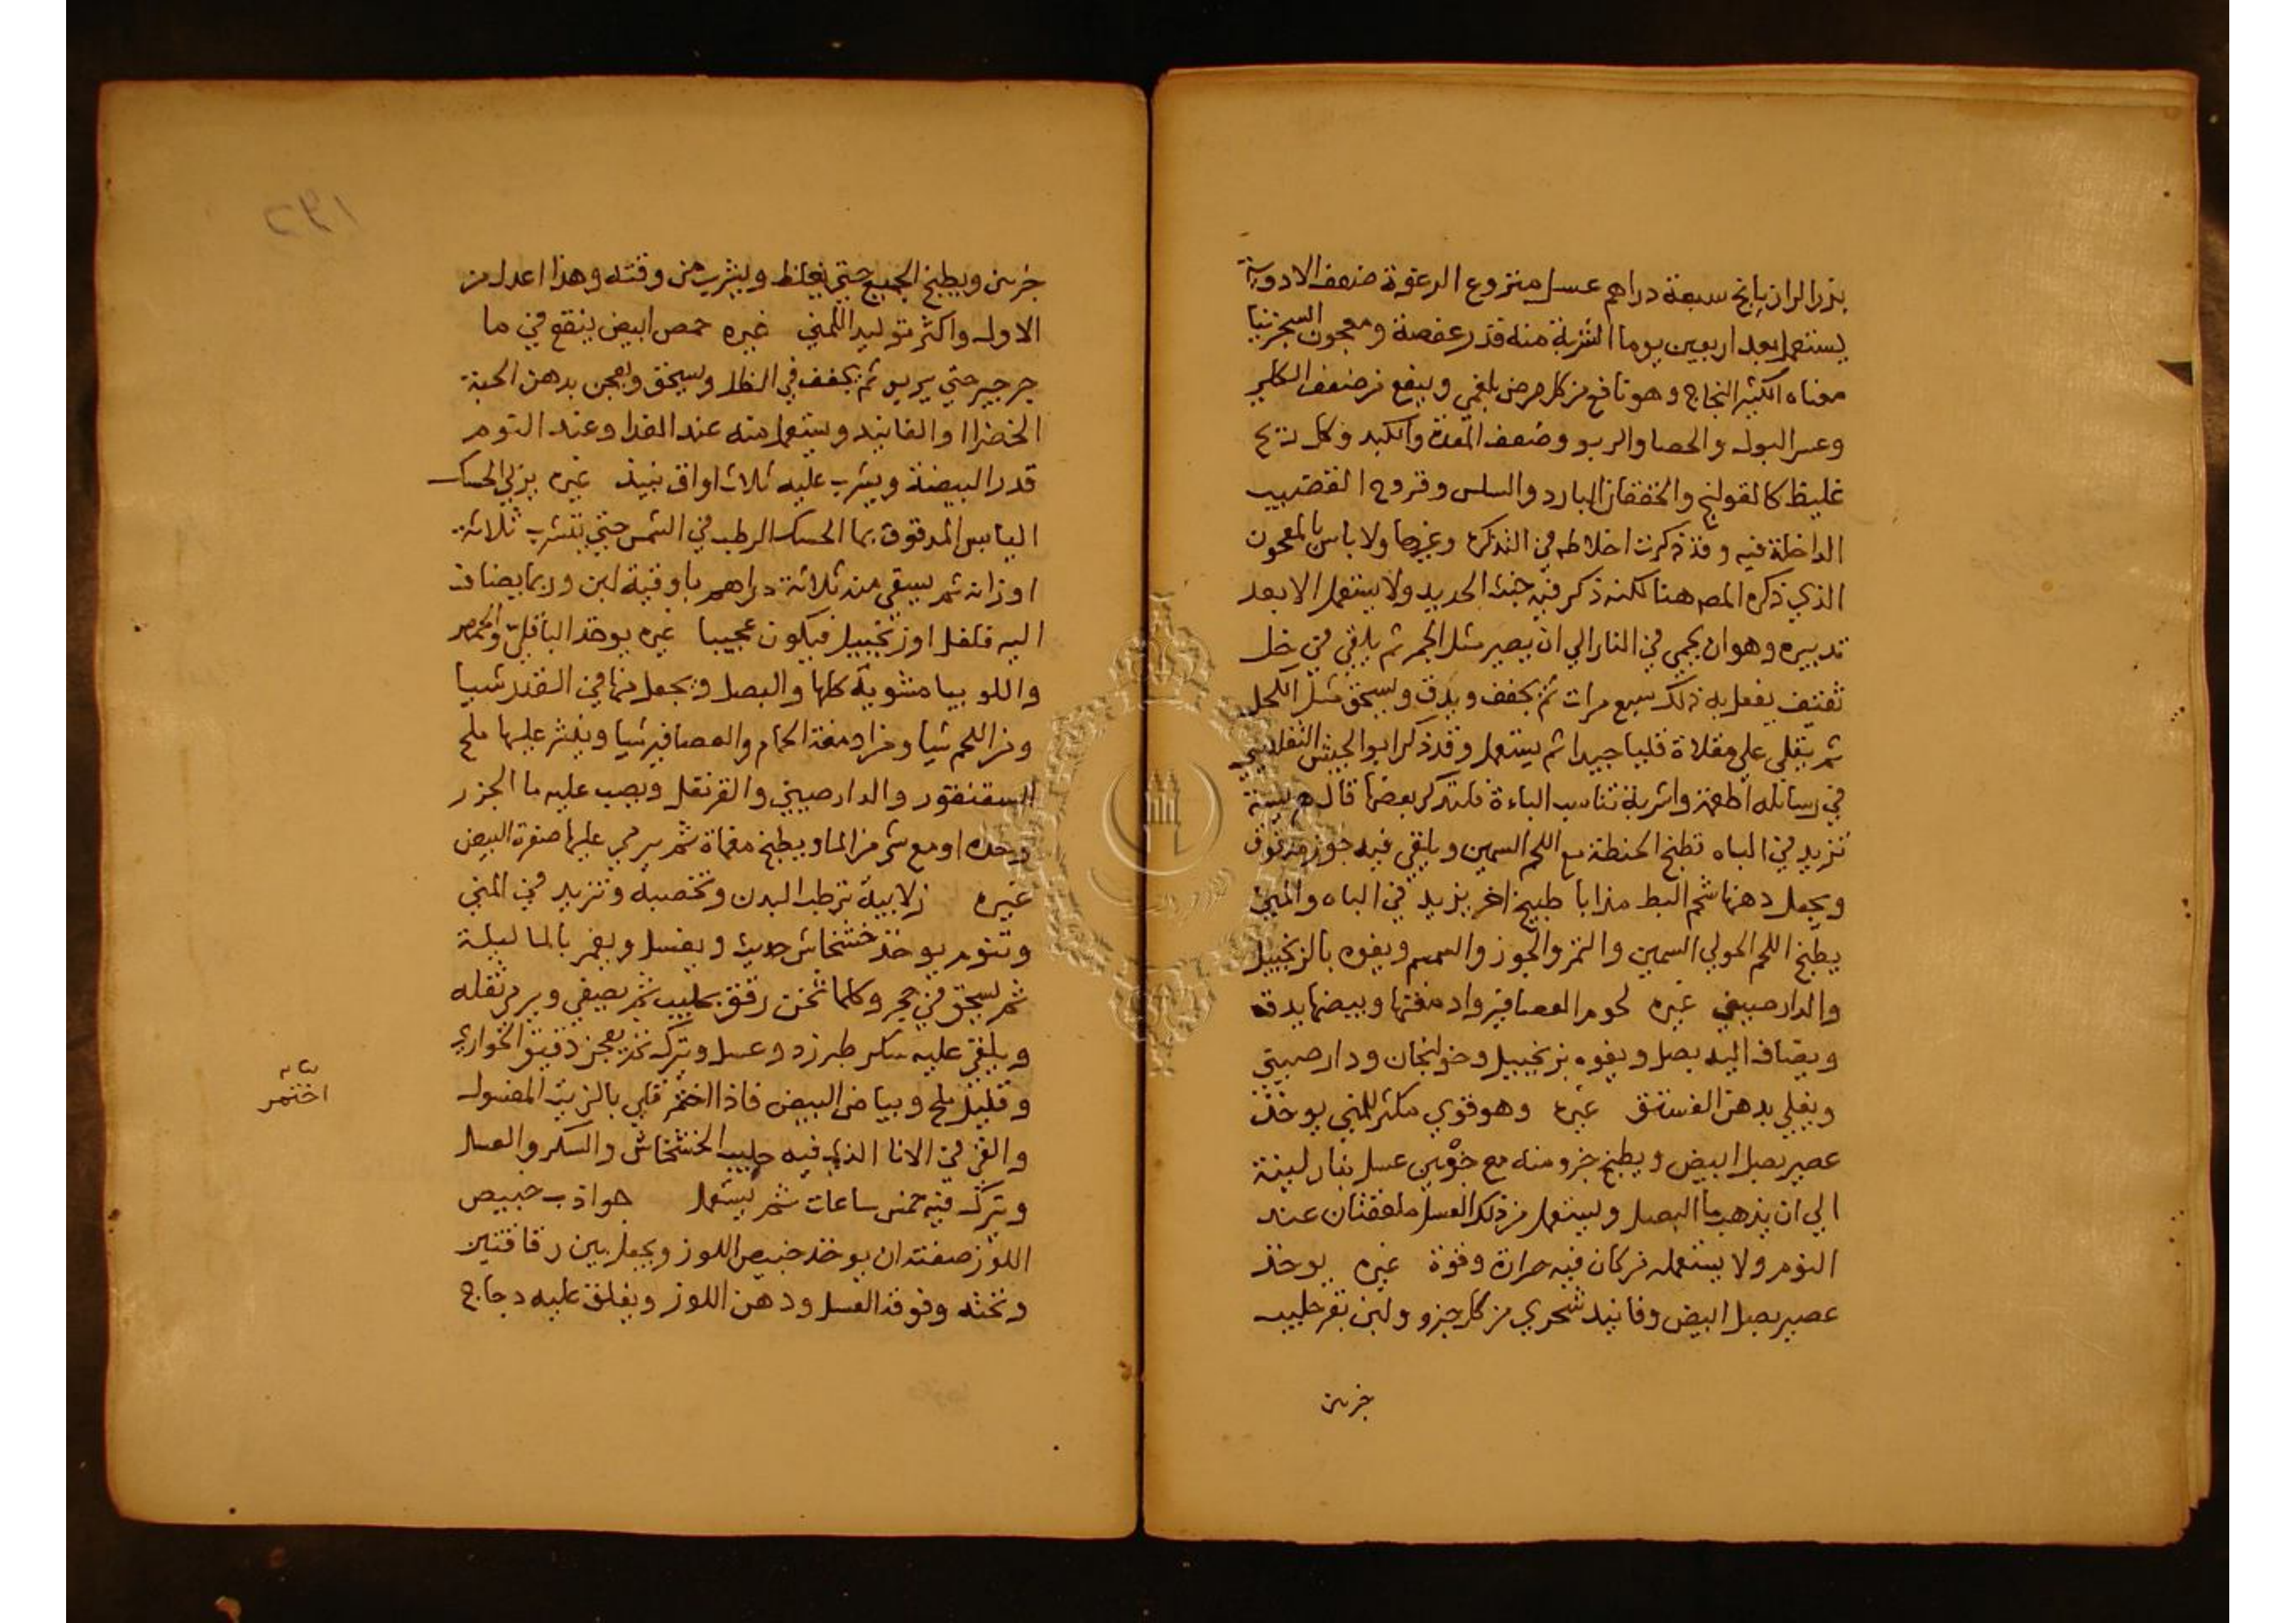 بزر الرازيانج سبعة دراهم عسل منزوع الرغوة ضعف الادوية
يستعمل بعد اربعين يوما الشربة منه قدر عفصة ومعجون السجزنيا
معناه الكثير النجاح وهو نافع من كل مرض بلغمي وينفع من ضعف الكلي
وعسر البول والحصا والربو وضعف المعدة والكبد وكل ريح
غليظ كالقولنج والخفقان البارد والسلس وقروح القضيب
الداخلة فيه وقد ذكرت اخلاطه في التذكرة وغيرها ولا باس بالمعجون
الذي ذكره المص هنا لكنه ذكر فيه خبث الحديد ولا يستعمل الا بعد
تدبيره وهو ان يحمي في النار الي ان يصير مثل الجمر ثم يلقي في خل
ثقيف يفعل به ذلك سبع مرات ثم يجفف ويدق ويسحق مثل الكحل
ثم يقلي علي مقلاة قليا جيدا ثم يستعمل وقد ذكر ابو الجيش التفليسي
في رسائله اطعمة واشربة تناسب الباءة فلنذكر بعضها قال هريسة
تزيد في الباه تطبخ الحنطة مع اللحم السمين ويلقي فيه جوز مدقوق
ويجعل دهنها شحم البط مذابا طبيخ اخر يزيد في الباه والمني
يطبخ اللحم الحولي السمين والتمر والجوز والسمسم ويفوه بالزنجبيل
والدارصيني غيره لحوم العصافير وادمغتها وبيضها يدق
ويضاف اليه بصل ويفوه بزنجبيل وخولنجان ودارصيني
ويقلي بدهن الفستق غيره وهو قوي مكثر للمني يوخذ
عصير بصل ابيض ويطبخ جزو منه مع جزوين عسل بنار لينة
الي ان يذهب ما البصل ويستعمل من ذلك العسل ملعقتان عند
النوم ولا يستعمله من كان فيه حرارة وقوة غيره يوخذ
عصير بصل ابيض وفانيد شحري من كل جزو ولبن بقر حليب
جزين
١٩٢
جزين ويطبخ الجميع حتي يغلظ ويشرب من وقته وهذا اعدل من
الاول واكثر توليدا للمني غيره حمص ابيض ينقع في ما
جرجير حتي يربو ثم يجفف في الظل ويسحق ويعجن بدهن الحبة
الخضرا والفانيد ويستعمل منه عند الغدا وعند النوم
قدر البيضة ويشرب عليه ثلاث اواق نبيذ غيره يربي الحسك
اليابس المدقوق بما الحسك الرطب في الشمس حتي يتشرب ثلاثة
اوزانه ثم يسقي منه ثلاثة دراهم باوقية لبن وربما يضاف
اليه فلفل او زنجبيل فيكون عجيبا غيره يوخذ الباقلي والحمص
واللوبيا مشوية كلها والبصل ويجعل منها في القدر شيا
ومن اللحم شيا ومن ادمغة الحمام والعصافير شيا وينثر عليها ملح
السقنقور والدارصيني والقرنفل ويصب عليه ما الجزر
وحده او مع شي من الما ويطبخ مغماة ثم يرمي عليها صفرة البيض
غيره زلابية ترطب البدن وتخصبه وتزيد في المني
وتنوم يوخذ خشخاش حديث ويغسل ويغمر بالما ليلة
ثم يسحق في حجر وكلما ثخن رقق بحليب ثم يصفي ويرمي ثفله
ويلقي عليه سكر طبرزد وعسل ويترك ثم يعجن دقيق الحواري
وقليل ملح وبياض البيض فاذا اختمر قلي بالزيت المغسول
والقي في الانا الذي فيه حليب الخشخاش والسكر والعسل
ويترك فيه خمس ساعات ثم يستعمل جواذب خبيص
اللوز صفته ان يوخذ خبيص اللوز ويجعل بين رقاقتين
وتحته وفوقه العسل ودهن اللوز ويعلق عليه دجاج
اختمر